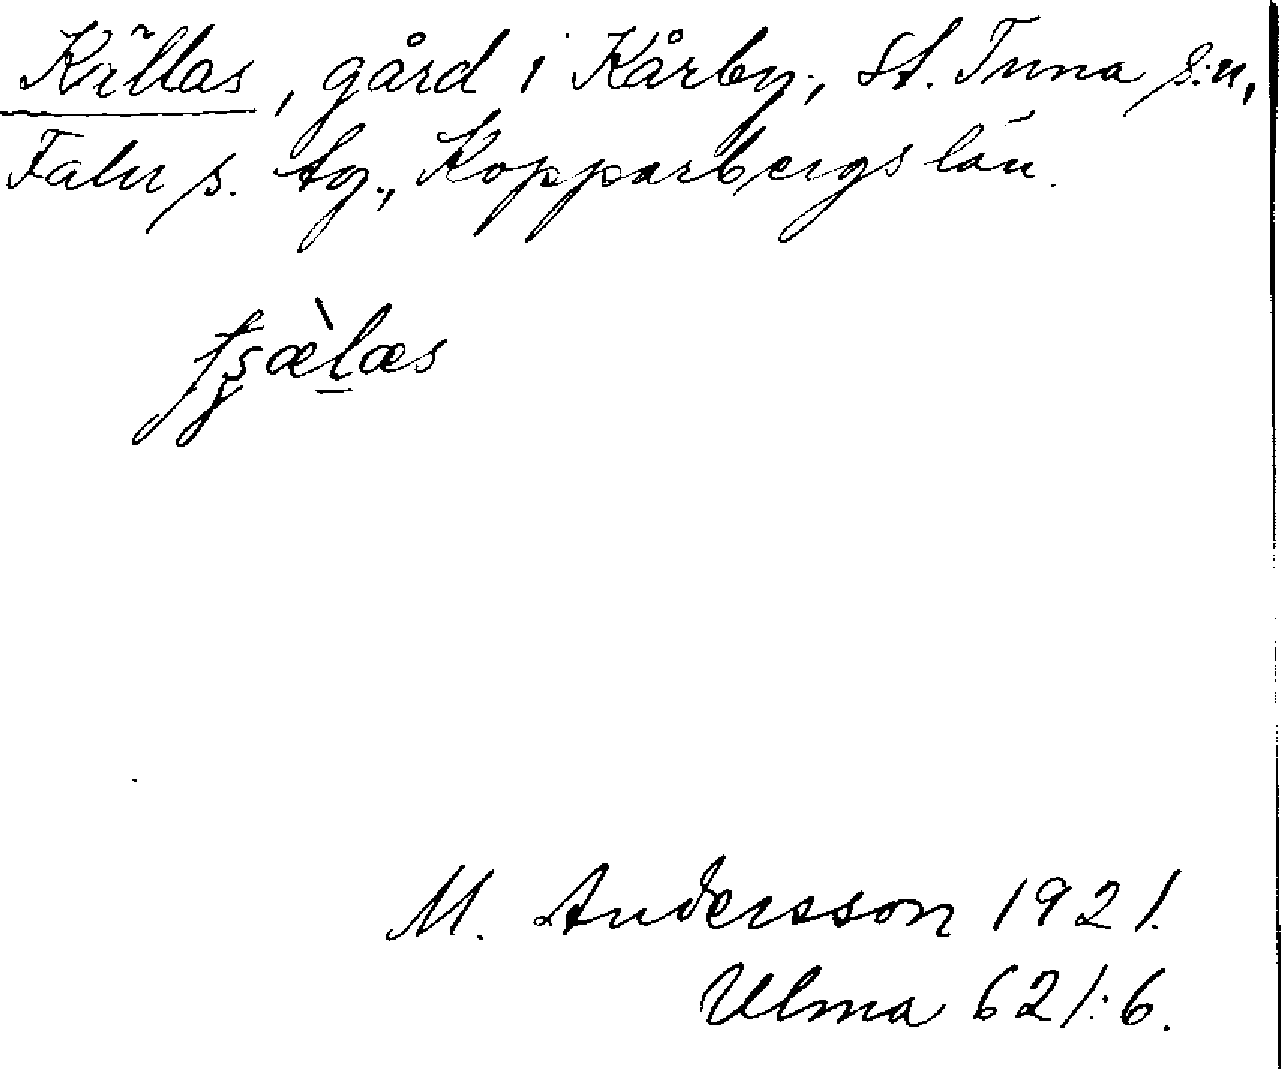 Källas, gård i Kårby, St. Tuna s:n,
Falu s. tg., Kopparbergs län.
M. Andersson 1921.
Ulma 621:6.